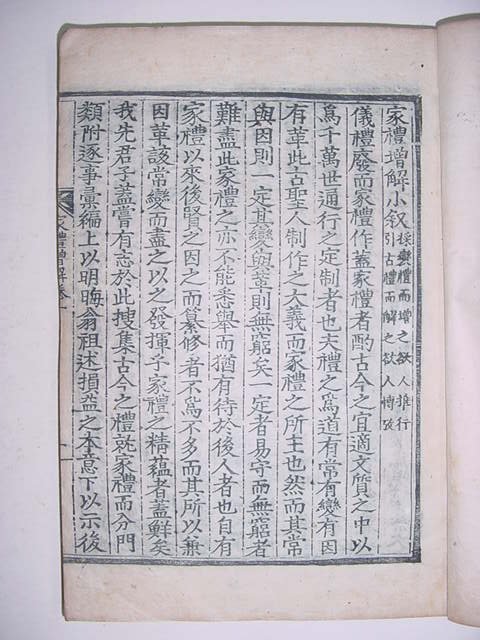 家禮增解小叙 採變禮而增之欲人推行 引古禮而解之欲人博攷
儀禮廢而家禮作蓋家禮者酌古今之宜適文質之中以
爲千萬世通行之定制者也夫禮之爲道有常有變有因
有革此古聖人制作之大義而家禮之所主也然而其常
與因則一定其變與革則無窮矣一定者易守而無窮者
難盡此家禮之亦不能悉舉而猶有待於後人者也自有
家禮以來後賢之因之而纂修者不爲不多而其所以兼
因革該常變而盡之以之發揮乎家禮之精蘊者蓋鮮矣
我先君子蓋嘗有志於此搜集古今之禮就家禮而分門
類附逐事彙編上以明晦翁祖述損益之本意下以示後
家禮增解卷一